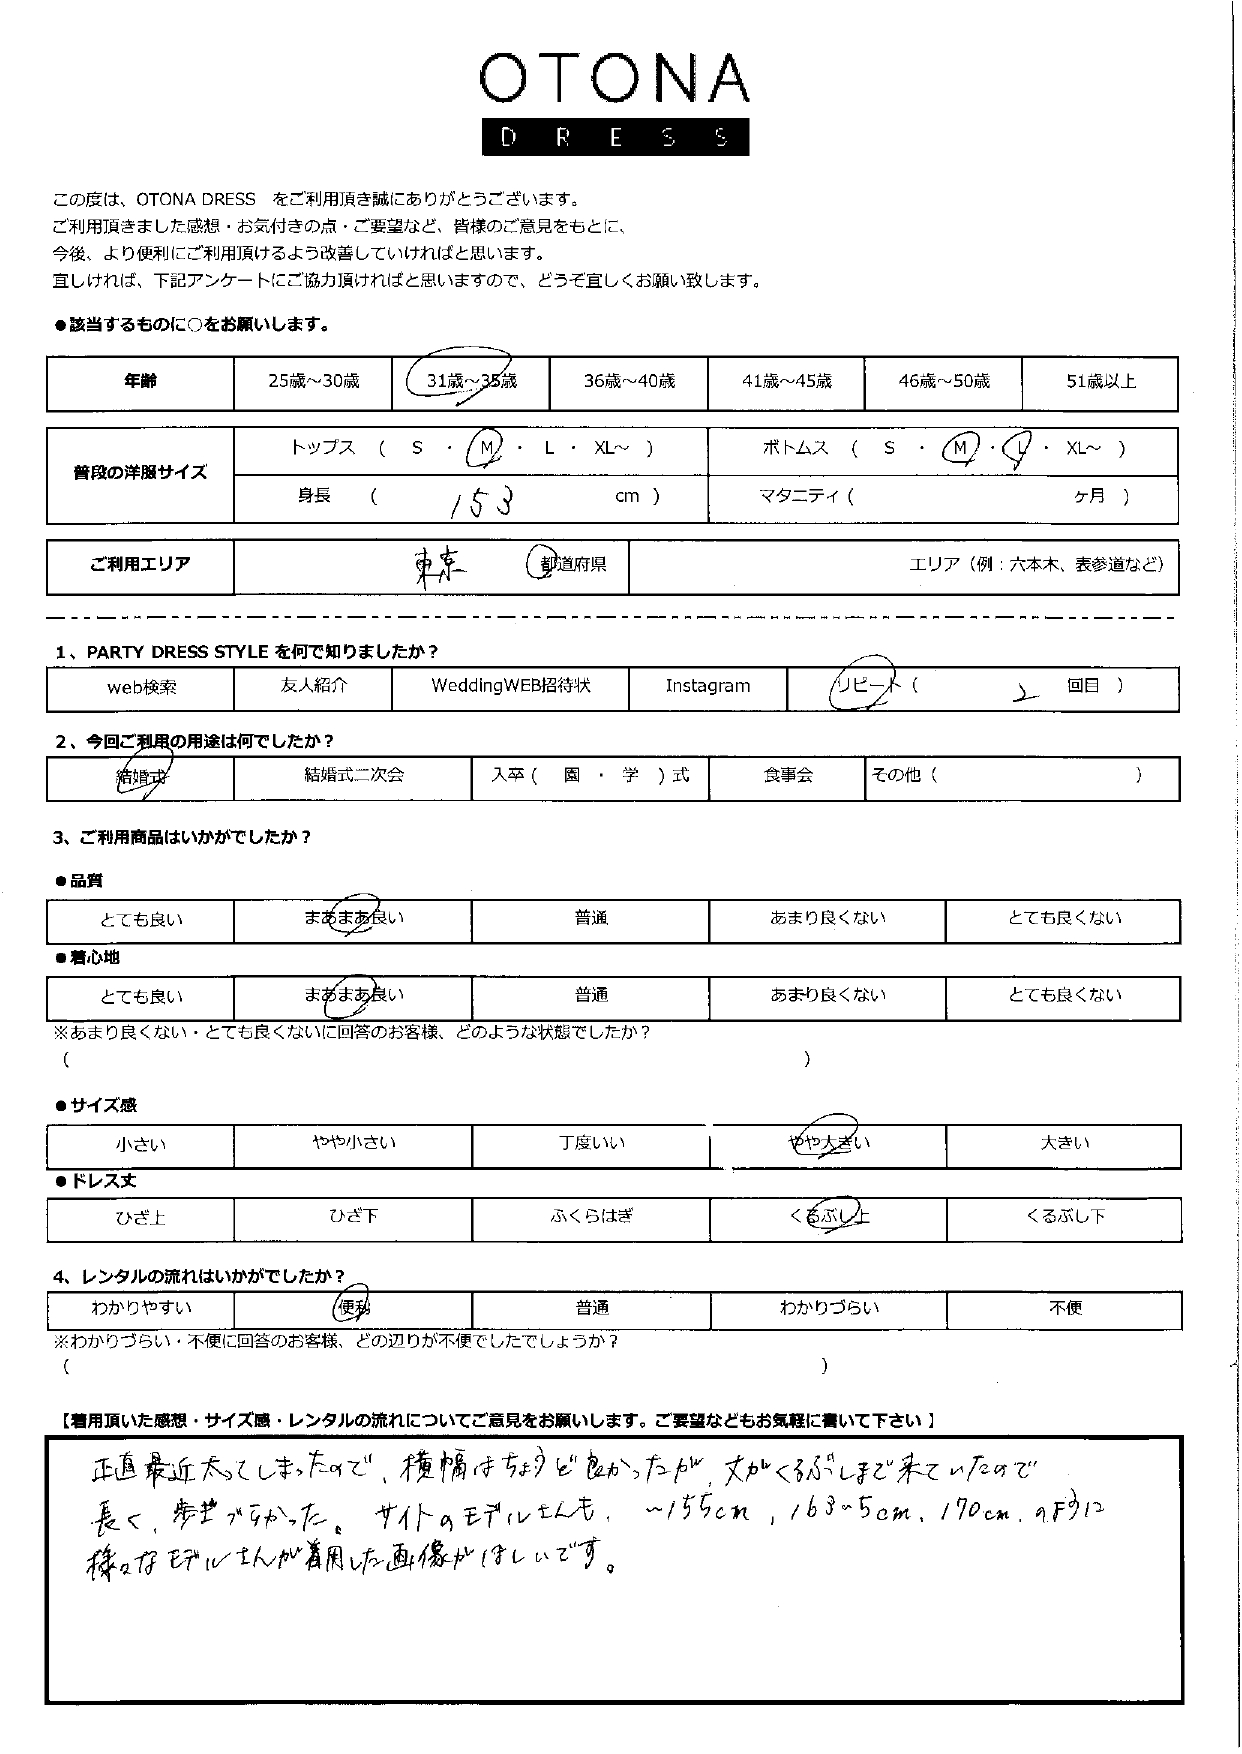 OTONA
DRESS
この度は、OTONA DRESS をご利用頂き誠にありがとうございます。
ご利用頂きました感想・お気付きの点・ご要望など、皆様のご意見をもとに、
今後、より便利にご利用頂けるよう改善していければと思います。
宜しければ、下記アンケートにご協力頂ければと思いますので、どうぞ宜しくお願い致します。
●該当するものに○をお願いします。
年齢 25歳～30歳 31歳～35歳 36歳～40歳 41歳～45歳 46歳～50歳 51歳以上
普段の洋服サイズ トップス ( S ・ M ・ L ・ XL～ ) ボトムス ( S ・ M ・ L ・ XL～ )
身長 ( 153 cm ) マタニティ ( ヶ月 )
ご利用エリア 東京 都道府県 エリア（例：六本木、表参道など）
1、PARTY DRESS STYLE を何で知りましたか？
web検索 友人紹介 WeddingWEB招待状 Instagram リピート ( 2 回目 )
2、今回ご利用の用途は何でしたか？
結婚式 結婚式二次会 入卒 ( 園 ・ 学 ) 式 食事会 その他 ( )
3、ご利用商品はいかがでしたか？
●品質
とても良い まあまあ良い 普通 あまり良くない とても良くない
●着心地
とても良い まあまあ良い 普通 あまり良くない とても良くない
※あまり良くない・とても良くないに回答のお客様、どのような状態でしたか？
( )
●サイズ感
小さい やや小さい 丁度いい やや大きい 大きい
●ドレス丈
ひざ上 ひざ下 ふくらはぎ くるぶし上 くるぶし下
4、レンタルの流れはいかがでしたか？
わかりやすい 便利 普通 わかりづらい 不便
※わかりづらい・不便に回答のお客様、どの辺りが不便でしたでしょうか？
( )
【着用頂いた感想・サイズ感・レンタルの流れについてご意見をお願いします。ご要望などもお気軽に書いて下さい】
正直最近太ってしまったので、横幅はちょうど良かったが、丈がくるぶしまで来ていたので
長く、歩きづらかった。サイトのモデルさんも、～155cm，163～5cm、170cm、のように
様々なモデルさんが着用した画像がほしいです。